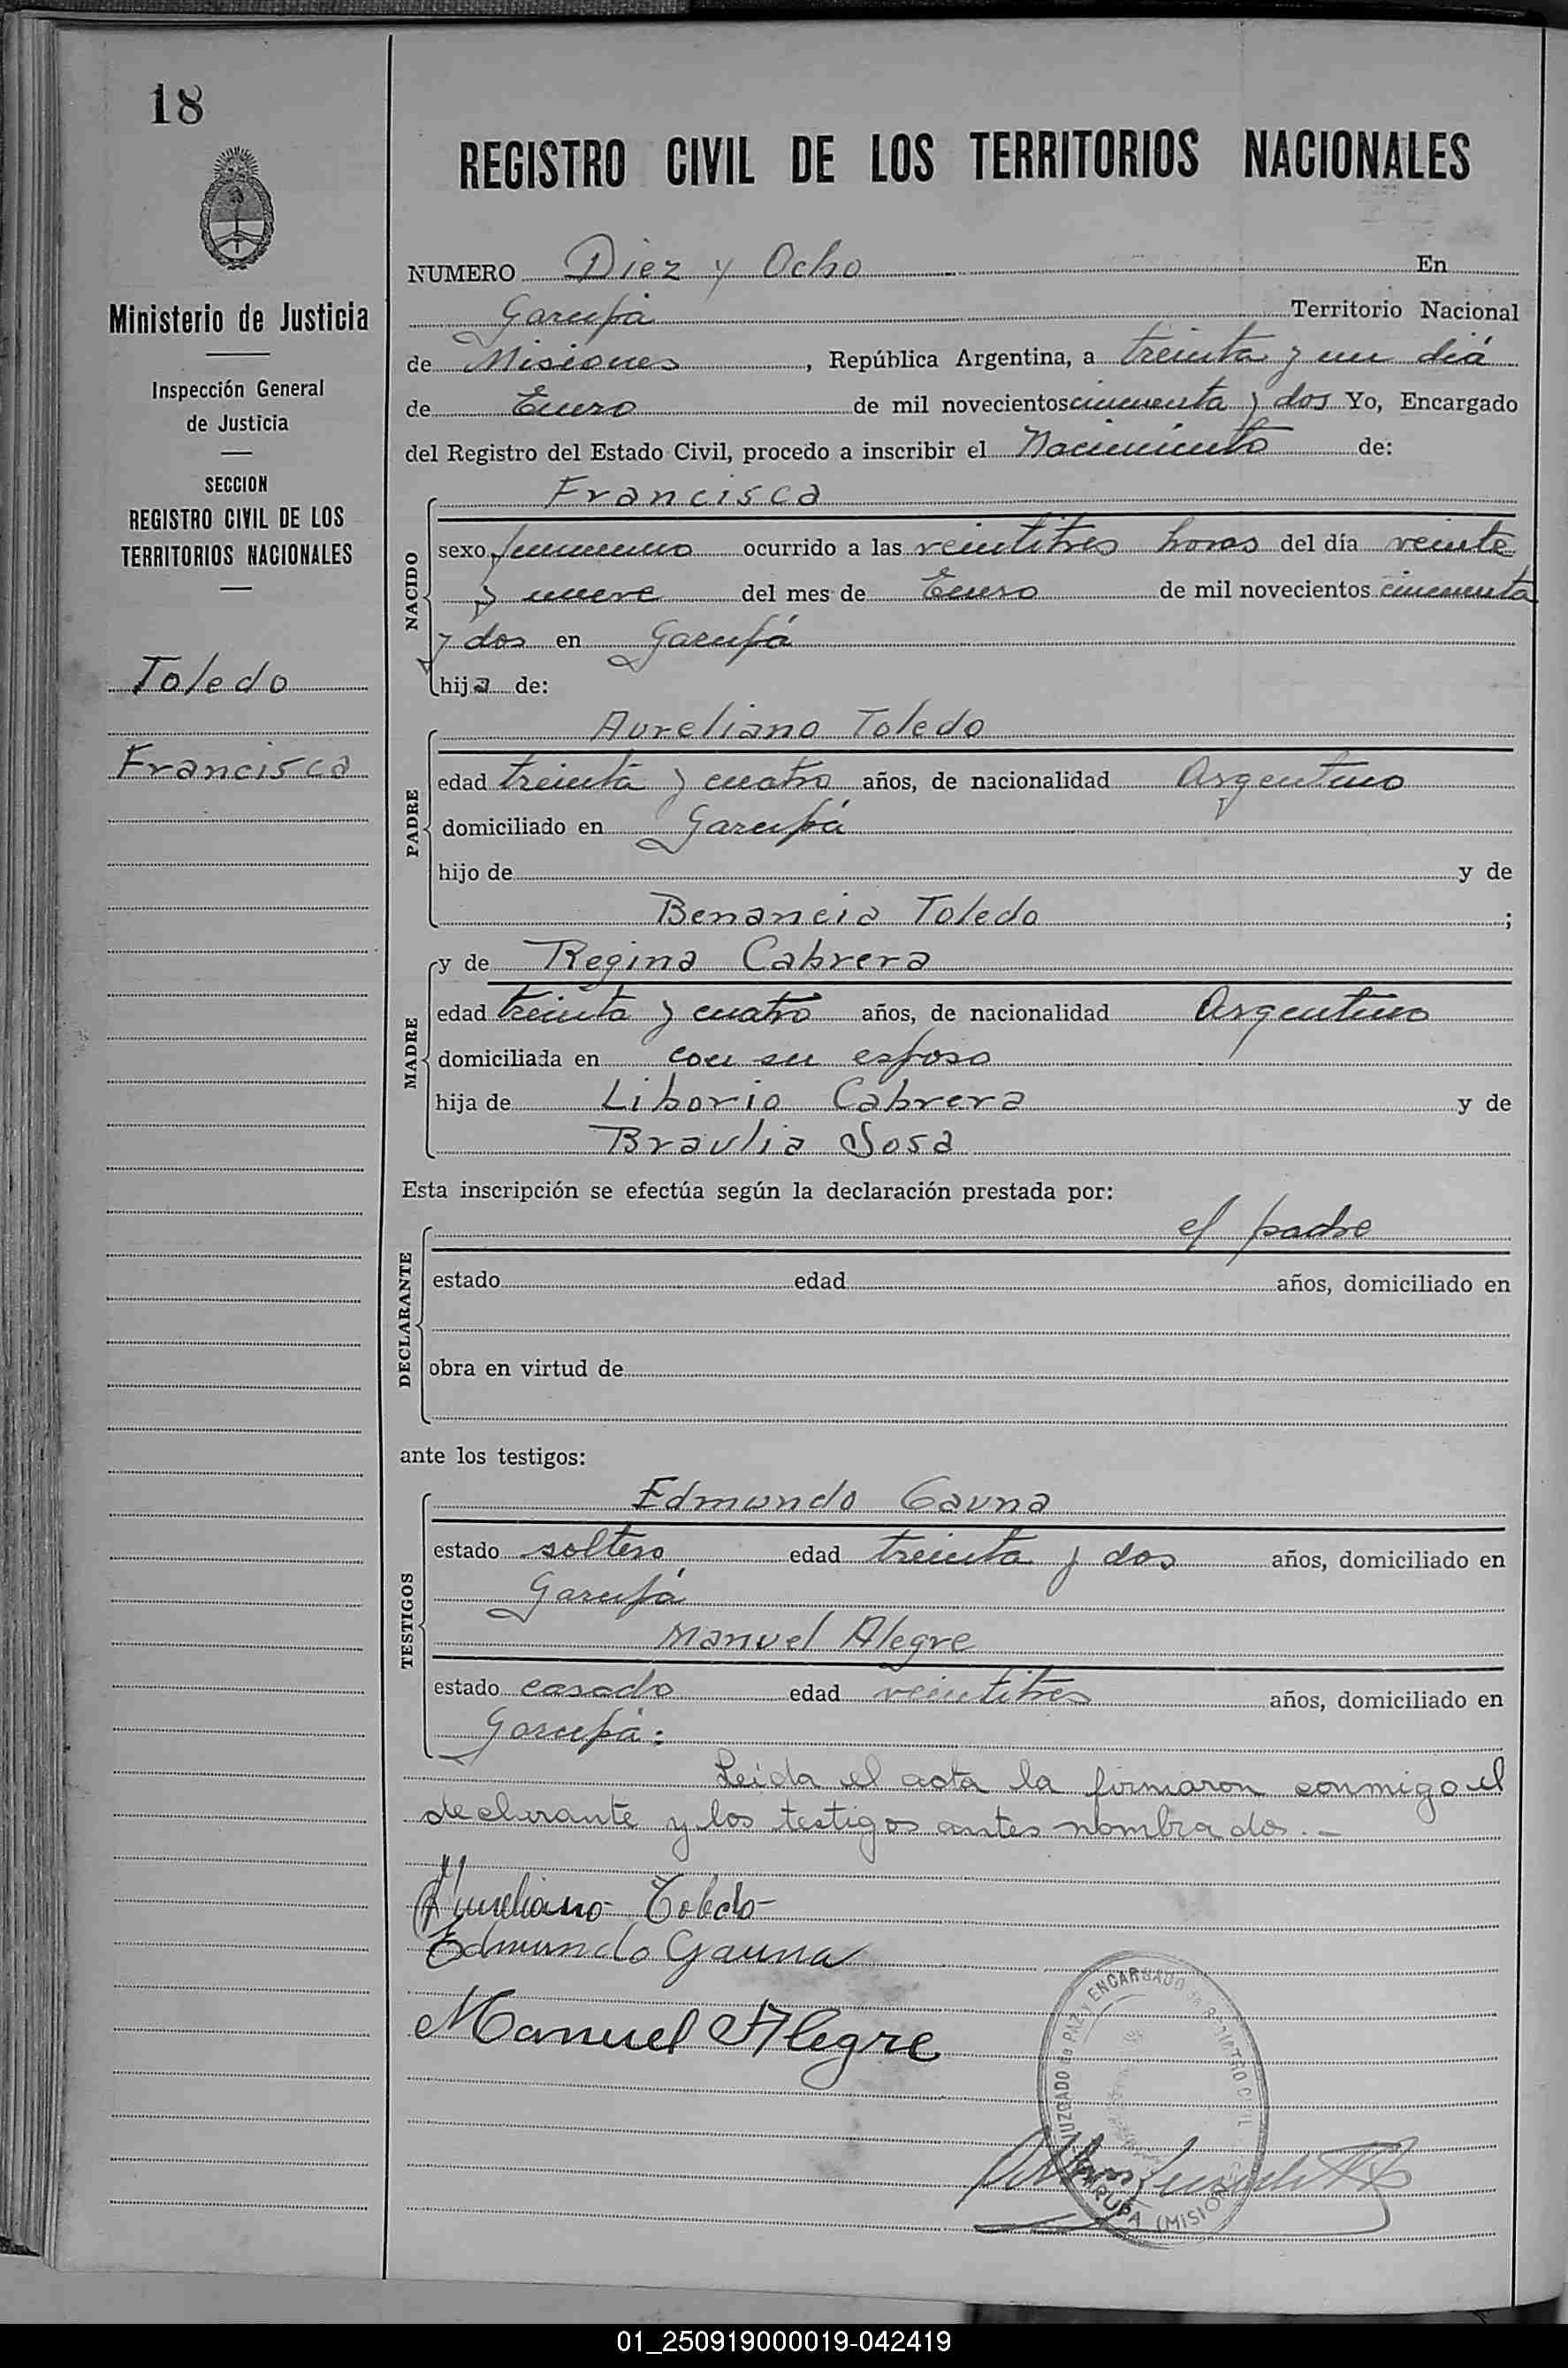 18
REGISTRO CIVIL DE LOS TERRITORIOS NACIONALES
Ministerio de Justicia
Inspección General
de Justicia
SECCION
REGISTRO CIVIL DE LOS
TERRITORIOS NACIONALES
Toledo
Francisca
NUMERO Diez y Ocho En
Garupá Territorio Nacional
de Misiones, República Argentina, a treinta y un diá
de Enero de mil novecientos cincuenta y dos Yo, Encargado
del Registro del Estado Civil, procedo a inscribir el Nacimiento de:
NACIDO
Francisca
sexo femenino ocurrido a las veintitres horas del día veinte
y nueve del mes de Enero de mil novecientos cincuenta
y dos en Garupá
hija de:
PADRE
Aureliano Toledo
edad treinta y cuatro años, de nacionalidad Argentino
domiciliado en Garupá
hijo de y de
Benancia Toledo ;
MADRE
y de Regina Cabrera
edad treinta y cuatro años, de nacionalidad Argentino
domiciliada en con su esposo
hija de Liborio Cabrera y de
Braulia Sosa
Esta inscripción se efectúa según la declaración prestada por:
DECLARANTE
el padre
estado edad años, domiciliado en
obra en virtud de
ante los testigos:
TESTIGOS
Edmundo Gauna
estado soltero edad treinta y dos años, domiciliado en
Garupá
Manuel Alegre
estado casado edad veintitres años, domiciliado en
Garupá:
Leida el acta la firmaron conmigo el
declarante y los testigos antes nombrados.-
Aureliano Toledo
Edmundo Gauna
Manuel Alegre
JUZGADO de PAZ y ENCARGADO de REGISTRO CIVIL
GARUPA (MISIONES)
01_250919000019-042419